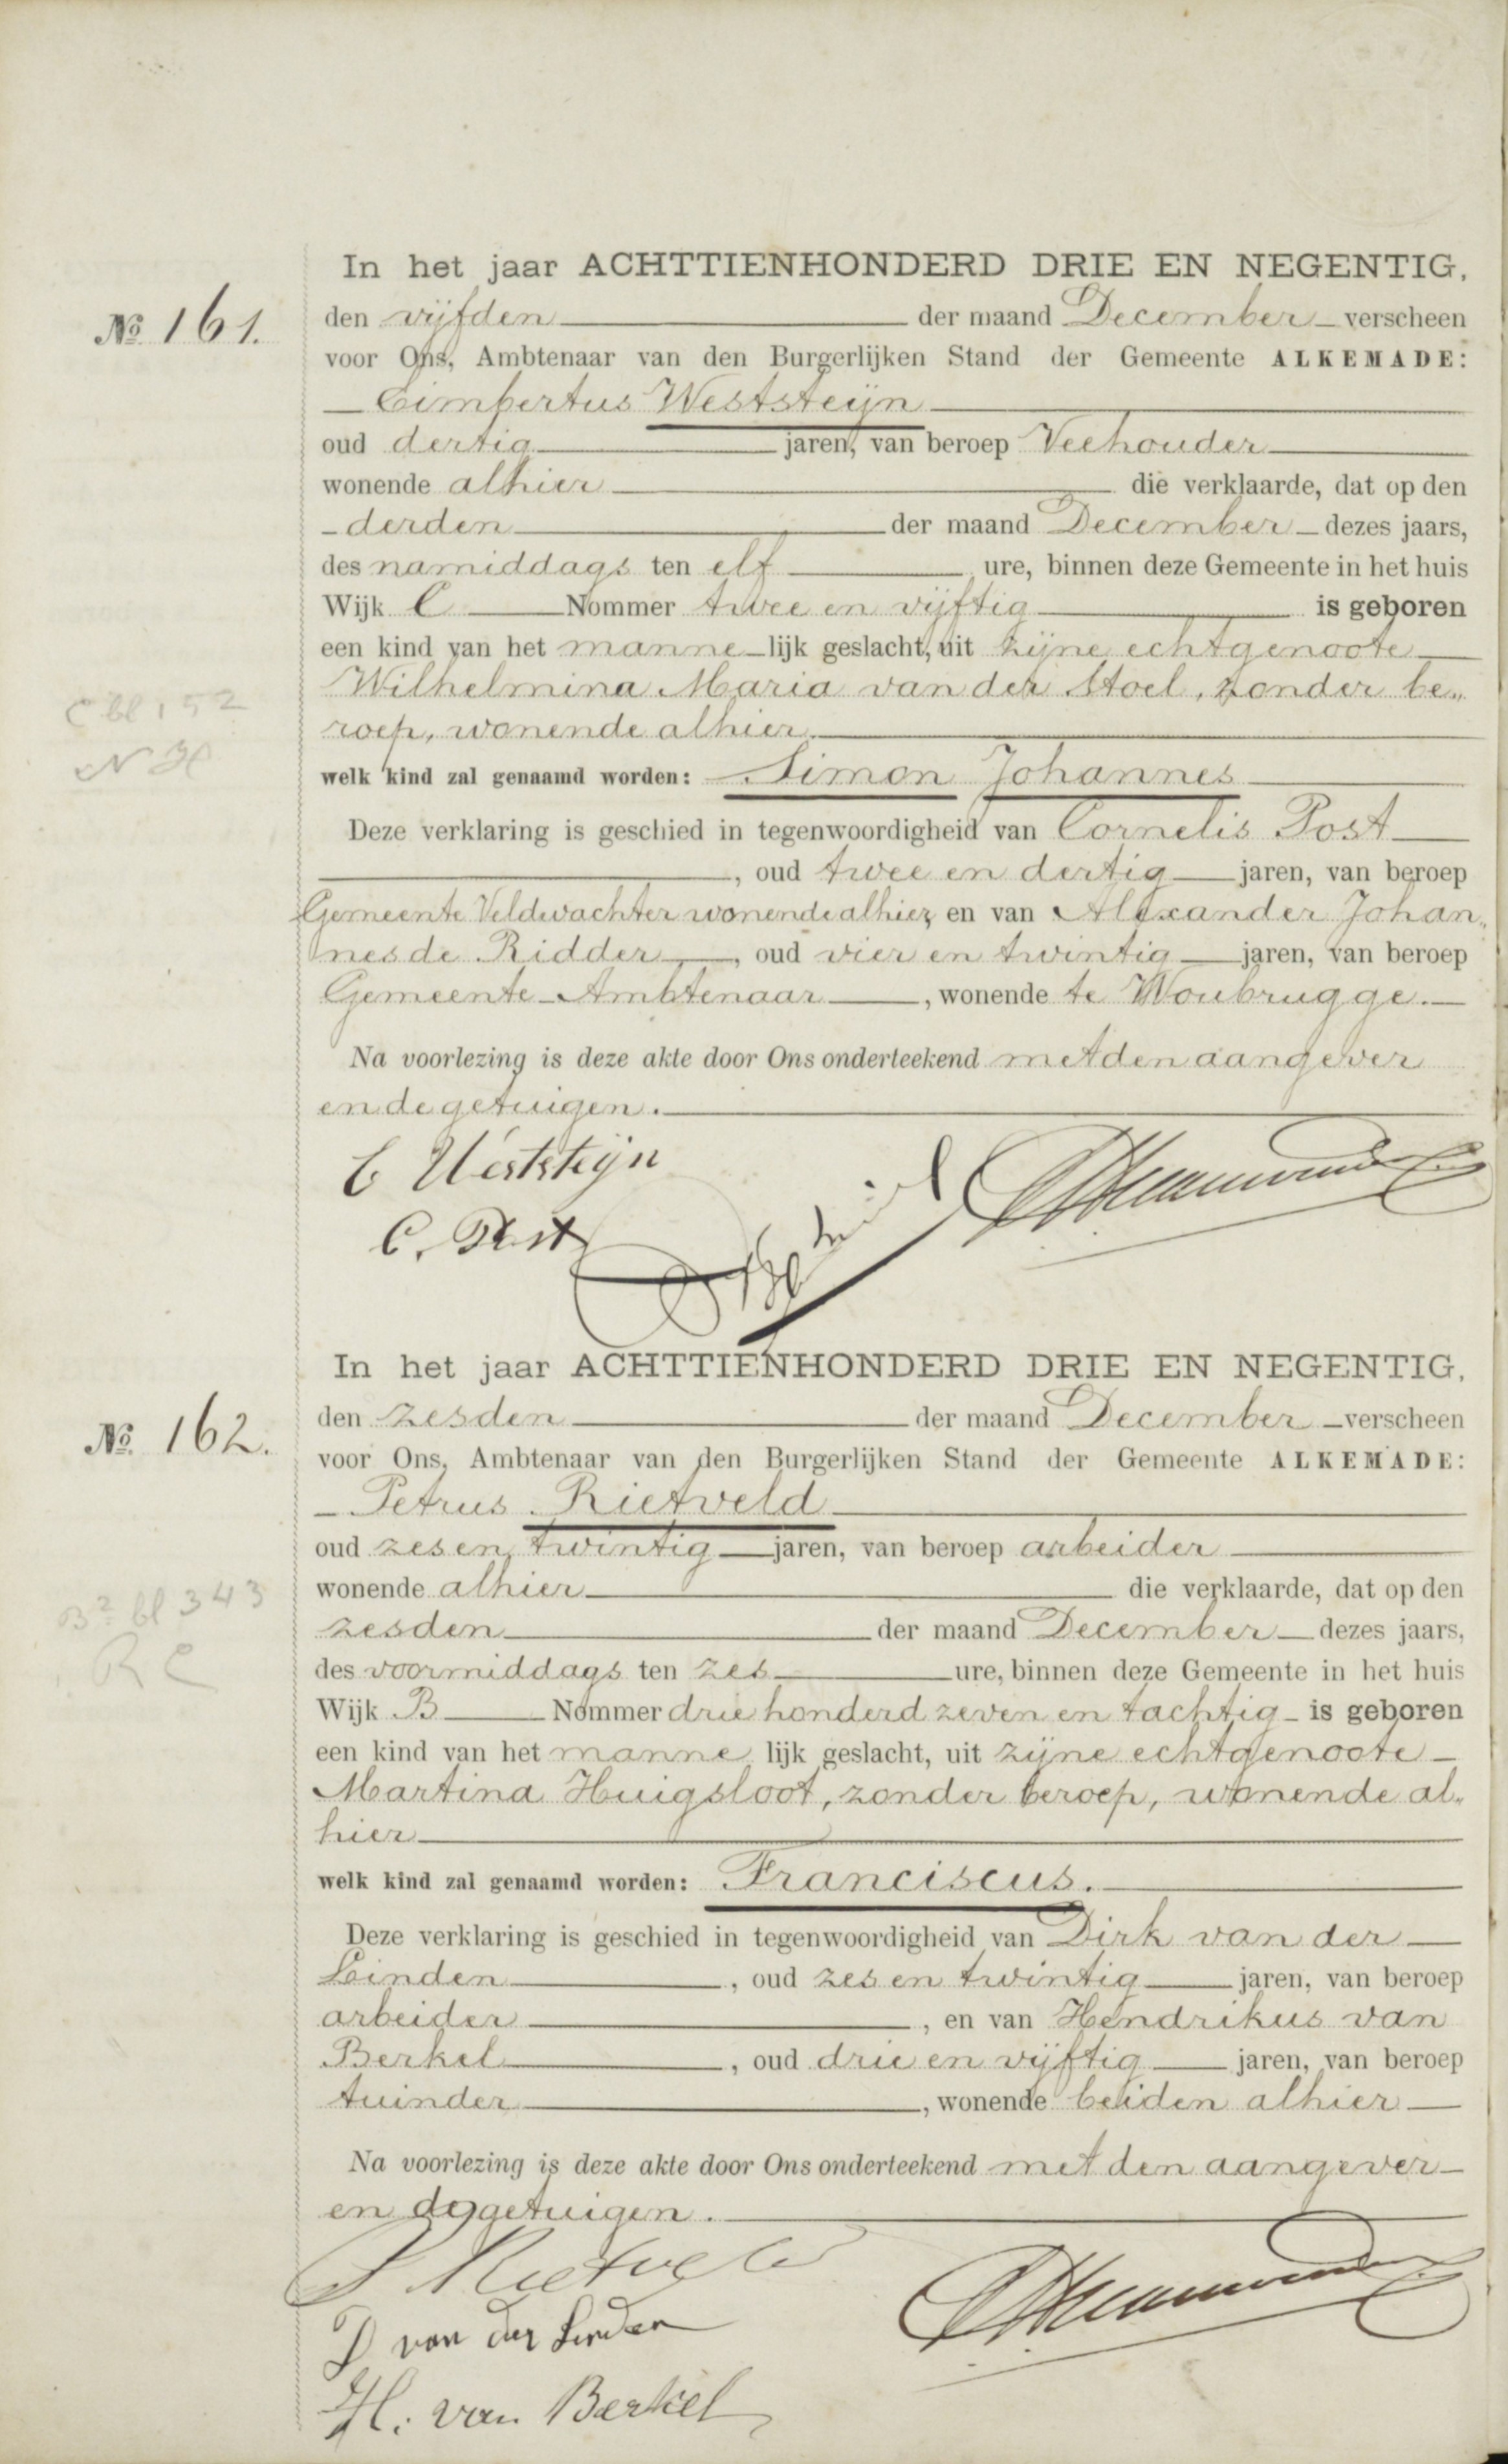 In het jaar ACHTTIENHONDERD DRIE EN NEGENTIG,
№ 161.
den vijfden der maand December verscheen
voor Ons, Ambtenaar van den Burgerlijken Stand der Gemeente ALKEMADE:
Eimbertus Weststeijn
oud dertig jaren, van beroep Veehouder
wonende alhier die verklaarde, dat op den
derden der maand December dezes jaars,
des namiddags ten elf ure, binnen deze Gemeente in het huis
Wijk C Nommer twee en vijftig is geboren
een kind van het manne lijk geslacht, uit zijne echtgenoote
Wilhelmina Maria van der Stoel, zonder be„
C bl 152
roep, wonende alhier.
welk kind zal genaamd worden: Simon Johannes
Deze verklaring is geschied in tegenwoordigheid van Cornelis Post
, oud twee en dertig jaren, van beroep
Gemeente Veldwachter wonende alhier, en van Alexander Johan„
nes de Ridder, oud vier en twintig jaren, van beroep
Gemeente-Ambtenaar, wonende te Woubrugge.
Na voorlezing is deze akte door Ons onderteekend met den aangever
en de getuigen.
E Weststeijn
C. Post
In het jaar ACHTTIENHONDERD DRIE EN NEGENTIG,
№ 162.
den zesden der maand December verscheen
voor Ons, Ambtenaar van den Burgerlijken Stand der Gemeente ALKEMADE:
Petrus Rietveld
oud zes en twintig jaren, van beroep arbeider
wonende alhier die verklaarde, dat op den
B2 bl 343
zesden der maand December dezes jaars,
RC
des voormiddags ten zes ure, binnen deze Gemeente in het huis
Wijk B Nommer drie honderd zeven en tachtig is geboren
een kind van het manne lijk geslacht, uit zijne echtgenoote
Martina Huigsloot, zonder beroep, wonende al„
hier
welk kind zal genaamd worden: Franciscus.
Deze verklaring is geschied in tegenwoordigheid van Dirk van der
Linden, oud zes en twintig jaren, van beroep
arbeider, en van Hendrikus van
Berkel, oud drie en vijftig jaren, van beroep
tuinder, wonende beiden alhier
Na voorlezing is deze akte door Ons onderteekend met den aangever
en de getuigen.
P Rietveld
D van der Linden
H. van Berkel